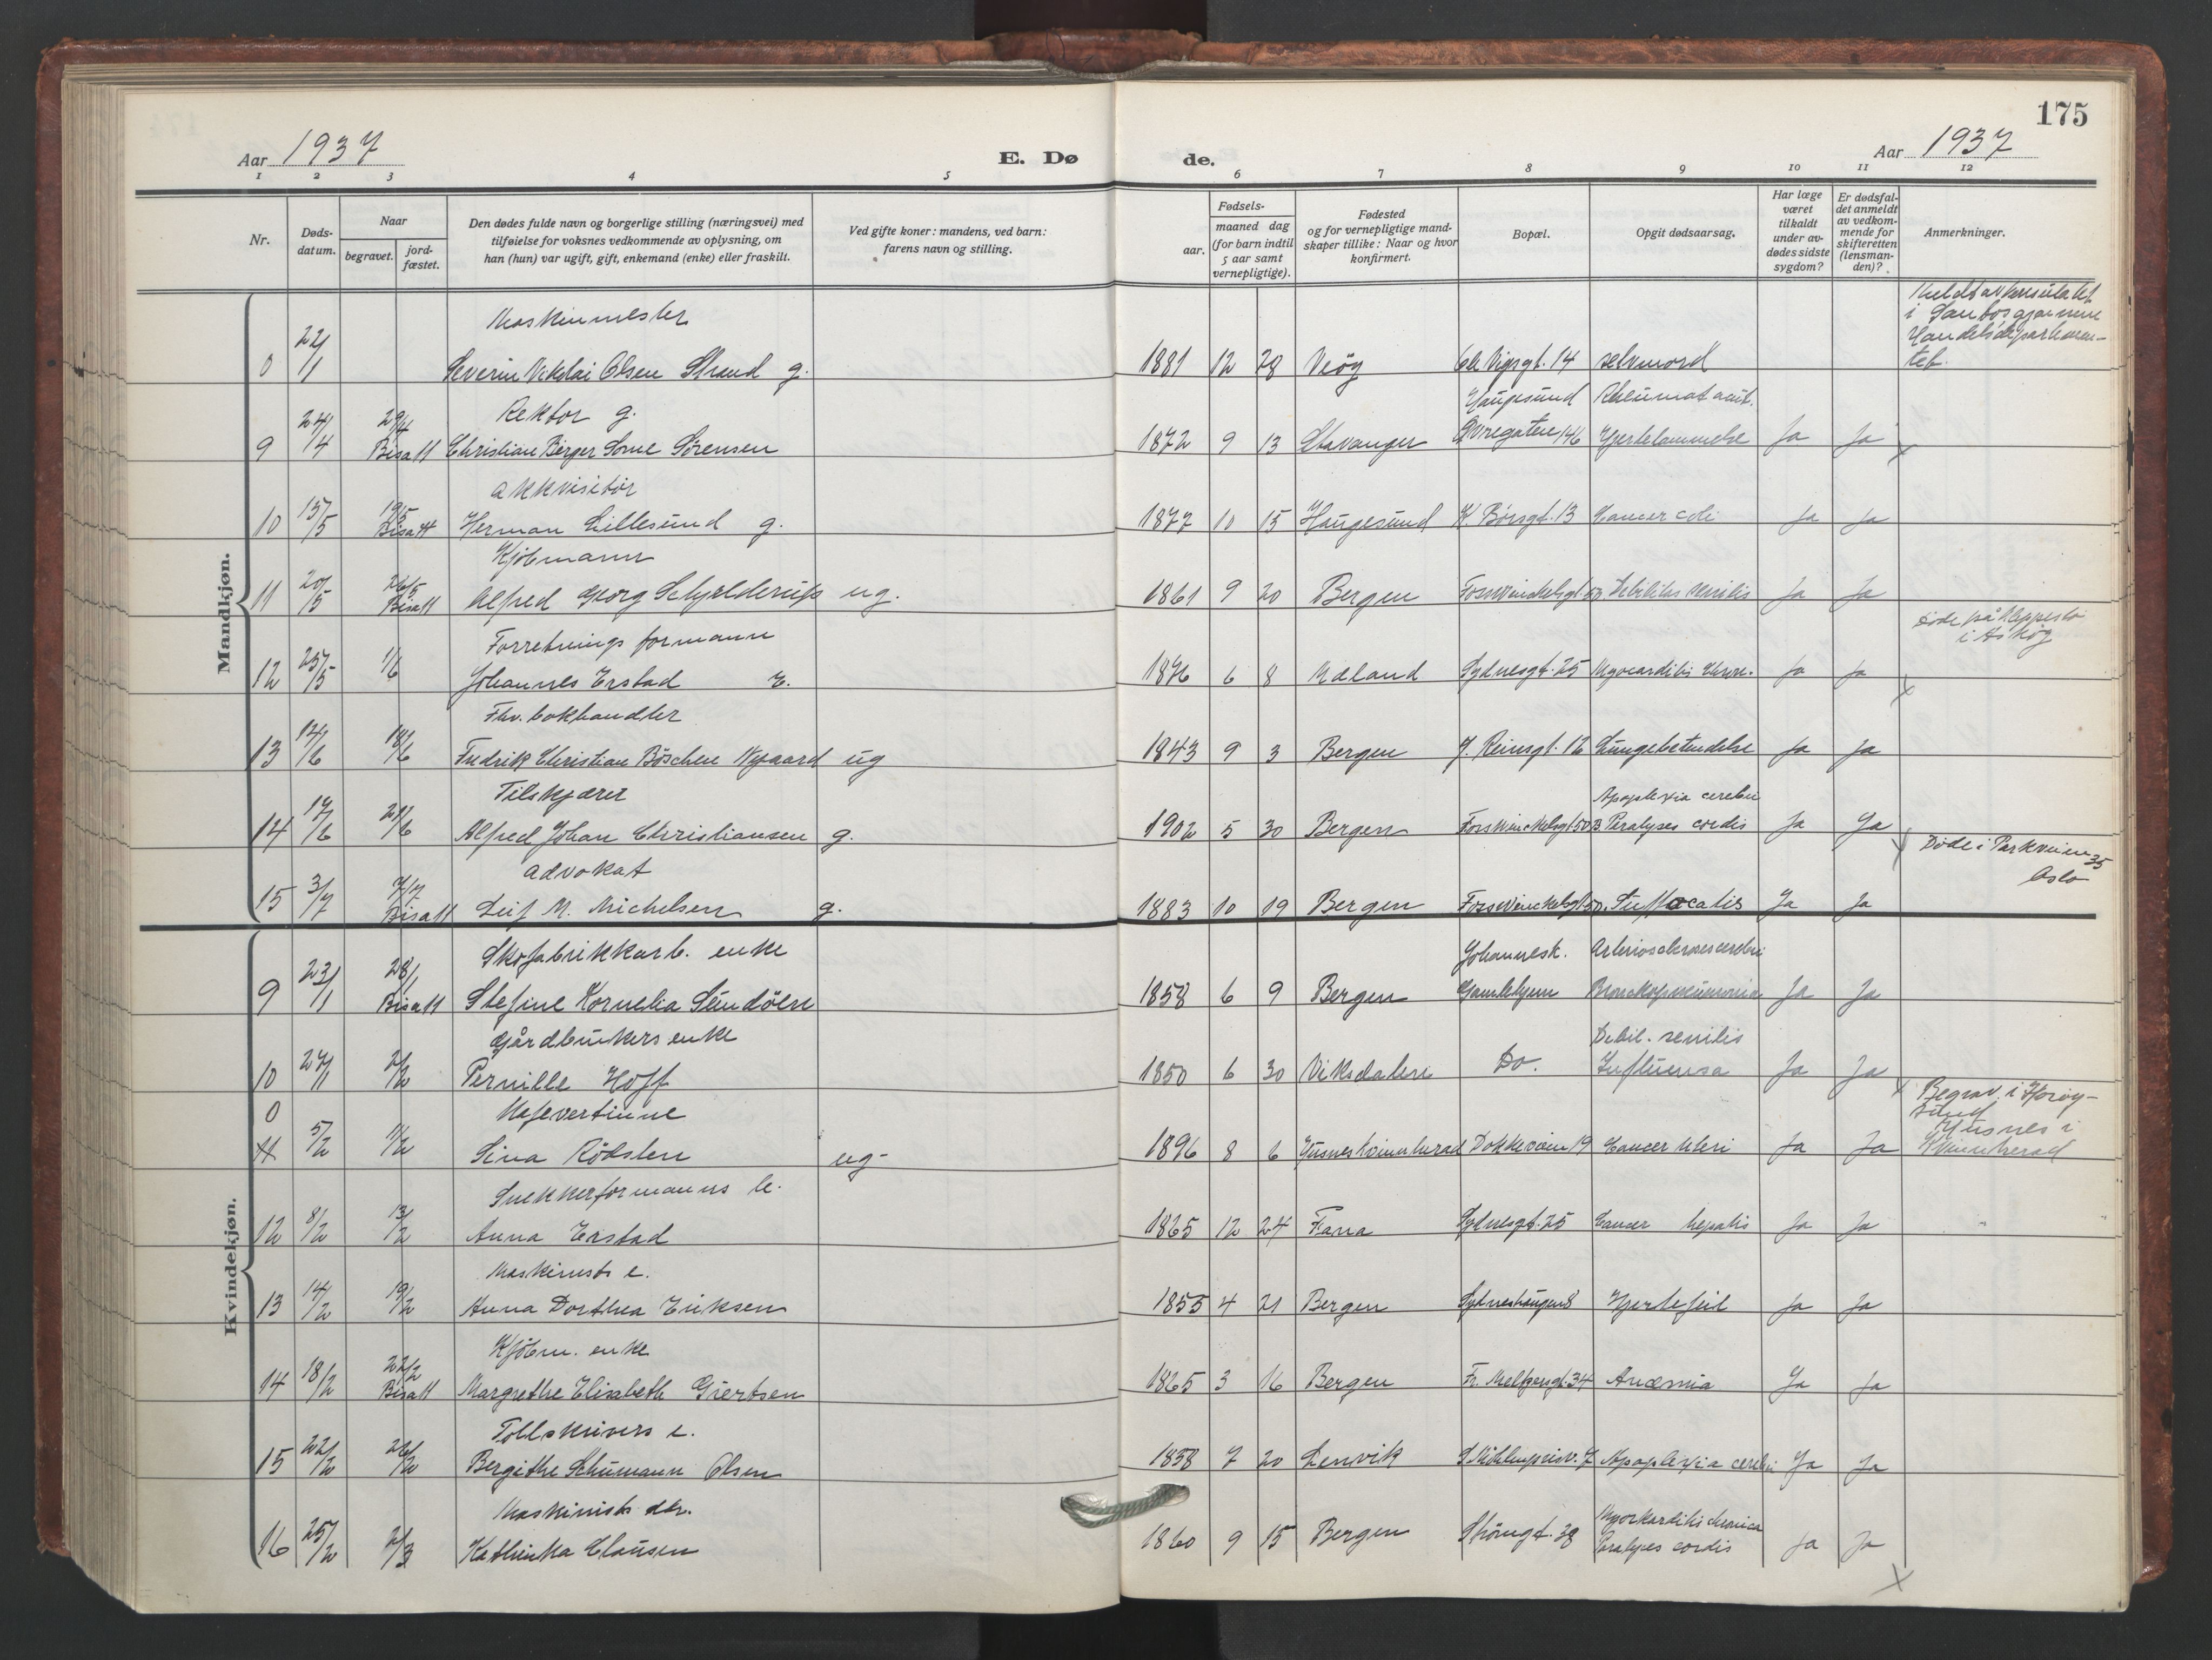 175
Aar 1937
E. Dø
de.
Aar 1937
1 2 3 4 5 6 7 8 9 10 11 12
Nr.
Døds-
datum.
Naar
begravet.
jord-
fæstet.
Den dødes fulde navn og borgerlige stilling (næringsvei) med
tilføielse for voksnes vedkommende av oplysning, om
han (hun) var ugift, gift, enkemand (enke) eller fraskilt.
Ved gifte koner: mandens, ved barn:
farens navn og stilling.
Fødsels-
aar.
maaned dag
(for barn indtil
5 aar samt
vernepligtige).
Fødested
og for vernepligtige mand-
skaper tillike: Naar og hvor
konfirmert.
Bopæl.
Opgit dødsaarsag.
Har læge
været
tilkaldt
under av-
dødes sidste
sygdom?
Er dødsfal-
det anmeldt
av vedkom-
mende for
skifteretten
(lensman-
den)?
Anmerkninger.
Mandkjøn.
Maskinmester
i Santos gjennem
Handelsdepartemen-
tet.
0 22/1 Severin Nikolai Olsen Strand g. 1881 12 28 Veöy 14 selvmord
Rektor g. Haugesund Rheumat.
9 24/4 29/4 Bisatt Christian Berger Sørensen 1872 9 13 Stavanger 146 Hjertelammelse Ja Ja
Akkvisitör
10 13/5 19/5 Bisatt Herman Lillesund g. 1877 10 15 Haugesund 13 Cancer coli Ja Ja
Kjöbmann
11 20/5 26/5 Bisatt Alfred Georg Schjelderup ug. 1861 9 20 Bergen Fosswinckelsgt. 50 Debilitas senilis Ja Ja
Forretningsformann
Döde på Kleppestö
i Askøy
12 25/5 1/6 Johannes Erstad E. 6 8 Sydnesgt. 25 Myocarditis chron. Ja Ja
Fhv. bokhandler
13 12/6 18/6 Fredrik Christian Böschen Nygaard ug 1843 9 3 Bergen 12 Lungebetendelse Ja Ja
Tilskjærer Apoplexia cerebri
14 17/6 21/6 Alfred Johan Christiansen g. 1902 5 30 Bergen Fosswinckelsgt. 50 B. Paralyses cordis Ja Ja
Advokat
Döde i Parkveien 35
Oslo
15 3/7 7/7 Bisatt Leif M. Michelsen g. 1883 10 19 Bergen Fosswinckelsgt. 50. Suffocatis Ja Ja
Kvindekjøn.
Skofabrikkarb. enke Johannesk. Arteriosclerosis cerebri
9 23/1 28/1 Bisatt Stefine Kornelia Sundöen 1858 6 9 Bergen Gamlehjem Bronchopneumonia Ja Ja
Gårdbrukers enke Debil. senilis
10 27/1 2/2 Pernille Hoff 1850 6 30 Viksdalen Do. Influensa Ja Ja
Kafevertinne
0
11 5/2 11/2 Sina Rödsten ug- 1896 8 6 Husnes Kvinnherad Dokkeveien 19 Cancer uteri Ja Ja
Begrav. i Heröy-
sund
Husnes i
Kvinnherad
Snekkerformanns e.
12 8/2 13/2 Anna Erstad 1865 12 24 Fana Sydnesgt. 25 Cancer hepatis Ja Ja
Maskinists e.
13 14/2 19/2 Anna Dorthea Eriksen 1855 4 21 Bergen Sydneshaugen 8 Hjertefeil Ja Ja
Kjöbm. enke
14 18/2 22/2 Bisatt Margrethe Elisabeth Giertsen 1865 3 16 Bergen Fr. Meltzersgt. 34 Anæmia Ja Ja
Tollskrivers e.
15 22/2 26/2 Bergithe Schumann Olsen 1858 7 20 Lenvik 7 Apoplexia cerebri Ja Ja
Maskinists dtr. Myokarditis chronica
16 25/2 2/3 Kathinka Clausen 1860 9 15 Bergen 38 Paralyses cordis Ja Ja